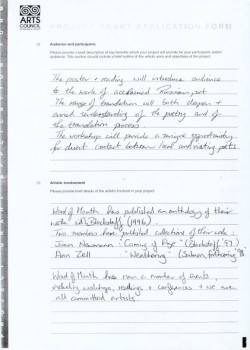 ARTS
COUNCIL
PROJECT GRANT APPLICATION FORM
Audience and participants
Please provide a brief description of key benefits which your project will provide for your participants and/or
audience. This section should include a brief outline of the artistic aims and objectives of the project
The poster + reading will introduce audience
to the work of acclaimed Russian poet
The range of translation will both deepen +
understanding of the poetry and of
the translation process
The workshops will provide a unique opportunity
for direct contact between local and visiting poets
Artistic involvement
Please provide brief details of the artists involved in your project
Word of Mouth has published an anthology of their
work with Blackstaff (1996)
Two members have published collections of their work:
Joan Newmann "Coming of Age" (Blackstaff '
Ann Zell "Weathering" (Salmon,
Word of Mouth has run a number of events,
including workshops, readings + conferences + we are
all committed artists